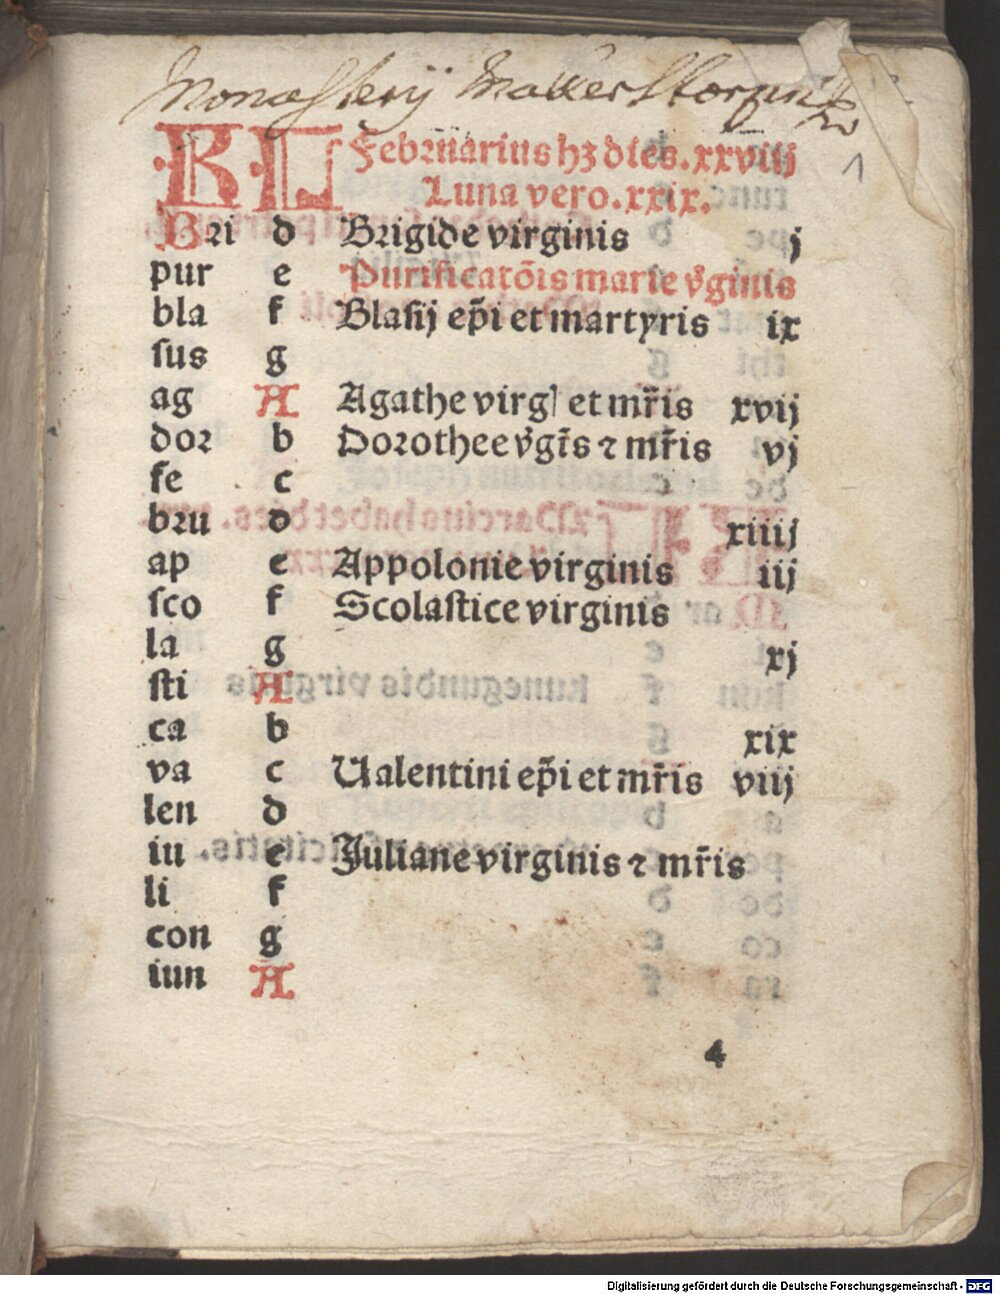 Monasterij Mallerstorffen
1
KL Februarius hꝫ dies. xxviij
Luna vero. xxix.
Bri d Brigide virginis j
pur e Purificatõis marie v̓ginis
bla f Blasij ep̃i et martyris ix
sus g
ag A Agathe virgl et mr̃is xvij
dor b Dorothee v̓gĩs ⁊ mr̃is vj
fe c
bru d xiiij
ap e Appolonie virginis iij
sco f Scolastice virginis
la g xj
sti A
ca b xix
va c Valentini ep̃i et mr̃is viij
len d
iu e Juliane virginis ⁊ mr̃is
li f
con g
iun A
4
Digitalisierung gefördert durch die Deutsche Forschungsgemeinschaft - DFG